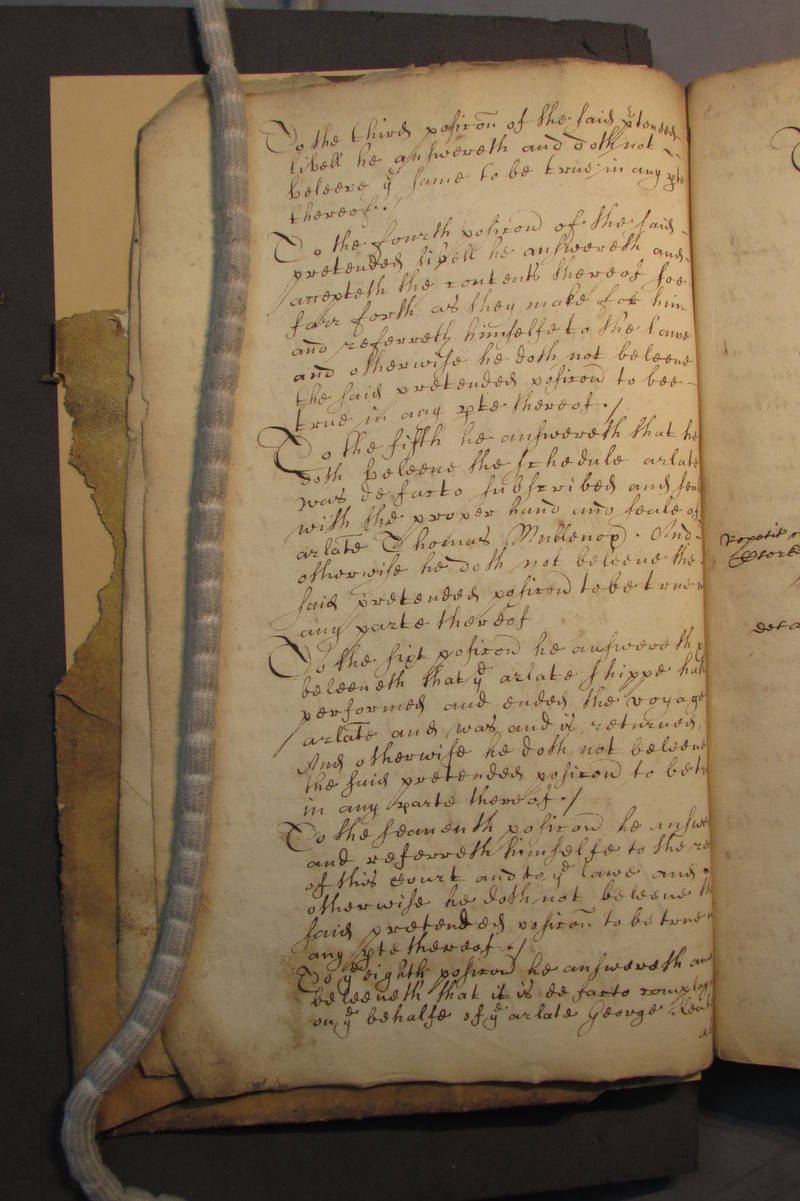 To the third posicon of the said ptended
libell he answereth and doth not
beleeve ye same to be true in any pte
thereof./
To the fourth posicon of the said
pretended libell he answereth and
accepteth the contents thereof soe
farr forth as they make for him
and referreth himselfe to the lawe
and otherwise he doth not beleeve
the said pretended posicon to bee
true in any pte thereof./
To the fifth he answereth that he
doth beleeve the schedule arlate
was de facto subscribed and
with the proper hand and seale of
arlate Thomas . And
otherwise he doth not beleeve the
said pretended posicon to be true
any parte thereof
To the sixt posicon he answereth
beleeveth that ye arlate shippe hath
performed and ended the voyage
arlate and was and is returned
And otherwise he doth not beleeve
the said pretended posicon to be
in any parte thereof./
To the seaventh posicon he
and referreth himselfe to the
of this Court and to ye lawe and
otherwise he doth not beleeve
said pretended posicon to be true
any pte thereof./
To ye eighth posicon he answereth and
beleeveth that it is de facto
on ye behalfe of ye arlate George